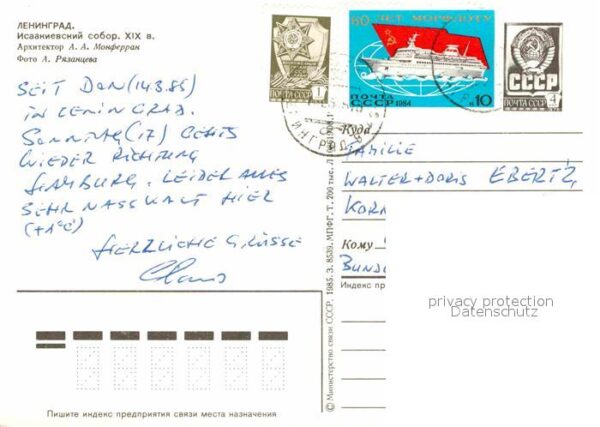 ЛЕНИНГРАД.
Исаакиевский собор. XIX в.
Архитектор А. А. Монферран
Фото А. Рязанцева
SEIT DON (14.3.85)
IN LENINGRAD.
SONNTAG (17) GEHTS
WIEDER RICHTUNG
HAMBURG. LEIDER ALLES
SEHR NASSKALT HIER
(+1°C)
HERZLICHE GRÜSSE
Claus
1
ПОЧТА СССР
60 ЛЕТ МОРФЛОТУ
ПОЧТА
СССР 1984
К 10
СССР
ПОЧТА СССР
4
Куда
FAMILIE
WALTER + DORIS EBERTZ,
KOR
Кому
BUND
Индекс пре
privacy protection
Datenschutz
© Министерство связи СССР, 1985. З. 8539. МПФГ. Т. 200 тыс.
Пишите индекс предприятия связи места назначения